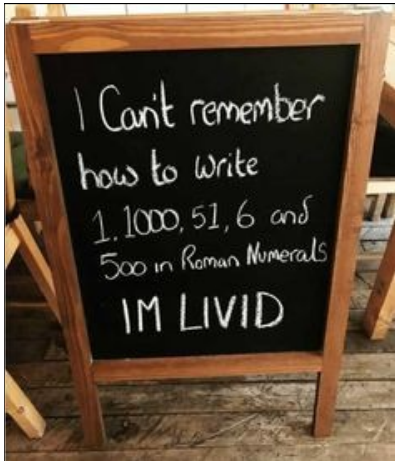 I Can't remember
how to write
1, 1000, 51, 6 and
500 in Roman Numerals
IM LIVID